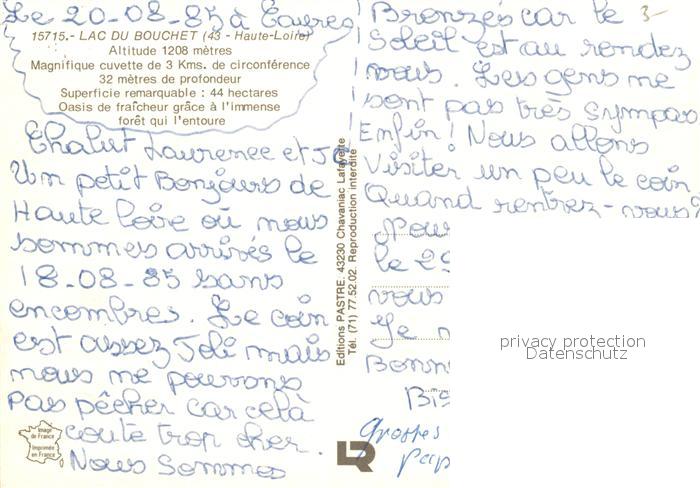 Le 20-08-85 à Cayres
15715.- LAC DU BOUCHET (43 - Haute-Loire)
Altitude 1208 mètres
Magnifique cuvette de 3 Kms. de circonférence
32 mètres de profondeur
Superficie remarquable : 44 hectares
Oasis de fraîcheur grâce à l'immense
forêt qui l'entoure
Chalut Laurence et
Un petit Bonjours de
Haute loire où nous
sommes arrivés le
18-08-85 sans
encombres. Le coin
est assez Joli mais
nous ne pouvons
pas pêcher car celà
coute trop cher.
Nous Sommes
Image
de France
Imprimée
en France
Editions PASTRE. 43230 Chavaniac Lafayette
Tél. (71) 77.52.02. Reproduction interdite
Bronzés car le
3-
Soleil est au rendez
vous. Les gens ne
sont pas très sympas
Enfin! Nous allons
Visiter un peu le coin
Quand rentrez-vous?
Nou
le 29
vous
Je
Bonn
Bis
grosses
pap
privacy protection
Datenschutz